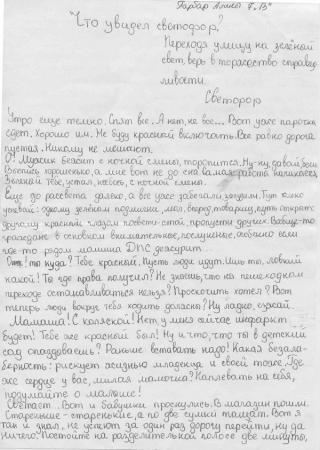 Гарбар Алина 7 "В"
"Что увидел светофор?"
Переходя улицу на зелёный
свет, верь в торжество справед-
ливости.
Светофор
Утро еще темно. Спят все.. А нет, не все... Вот уже парочка
идет. Хорошо им. Не буду красный включать. Все равно дорога
пустая. Никому не мешают.
О! Мужик бежит с ночной смены, торопится. Ну-ну, давай, беги
хорошенько, а мне вот не до сна. Самая работа начинается.
тебе, устал, небось, с ночной смены.
Еще до рассвета далеко, а все уже забегали, загудели. Тут только
успевай: одному зелёным подмигни, мол, вперед, товарищ, путь открыт;
другому красный глазом посвети - стой, пропусти других. Вообще-то
граждане в основном внимательные, послушные, особенно если
где-то рядом машина ДПС дежурит.
то куда? Тебе красный. Пусть люди идут. Ишь ты, ловкий
какой! Ты где права получил? Не знаешь, что на пешеходном
переходе останавливаться нельзя? Проскочить хотел? Вот
теперь люди вокруг тебя ходить должны? Ну ладно, езжай.
Мамаша! С коляской! Нет, у меня сейчас инфаркт
будет! Тебе же красный был! Ну и что, что ты в детский
сад опаздываешь? Раньше вставать надо! Какая безала-
берность: рискует жизнью младенца и своей тоже. Где
же сердце у вас, милая мамочка? Наплевать на себя,
подумайте о малыше!
Светает.. Вот и бабушки проснулись. В магазин пошли.
Старенькие - старенькие, а по две сумки тащат. Вот я
так и знал, не успеют за один раз дорогу перейти, ну да
ничего. Постойте на разделительной полосе две минуты,